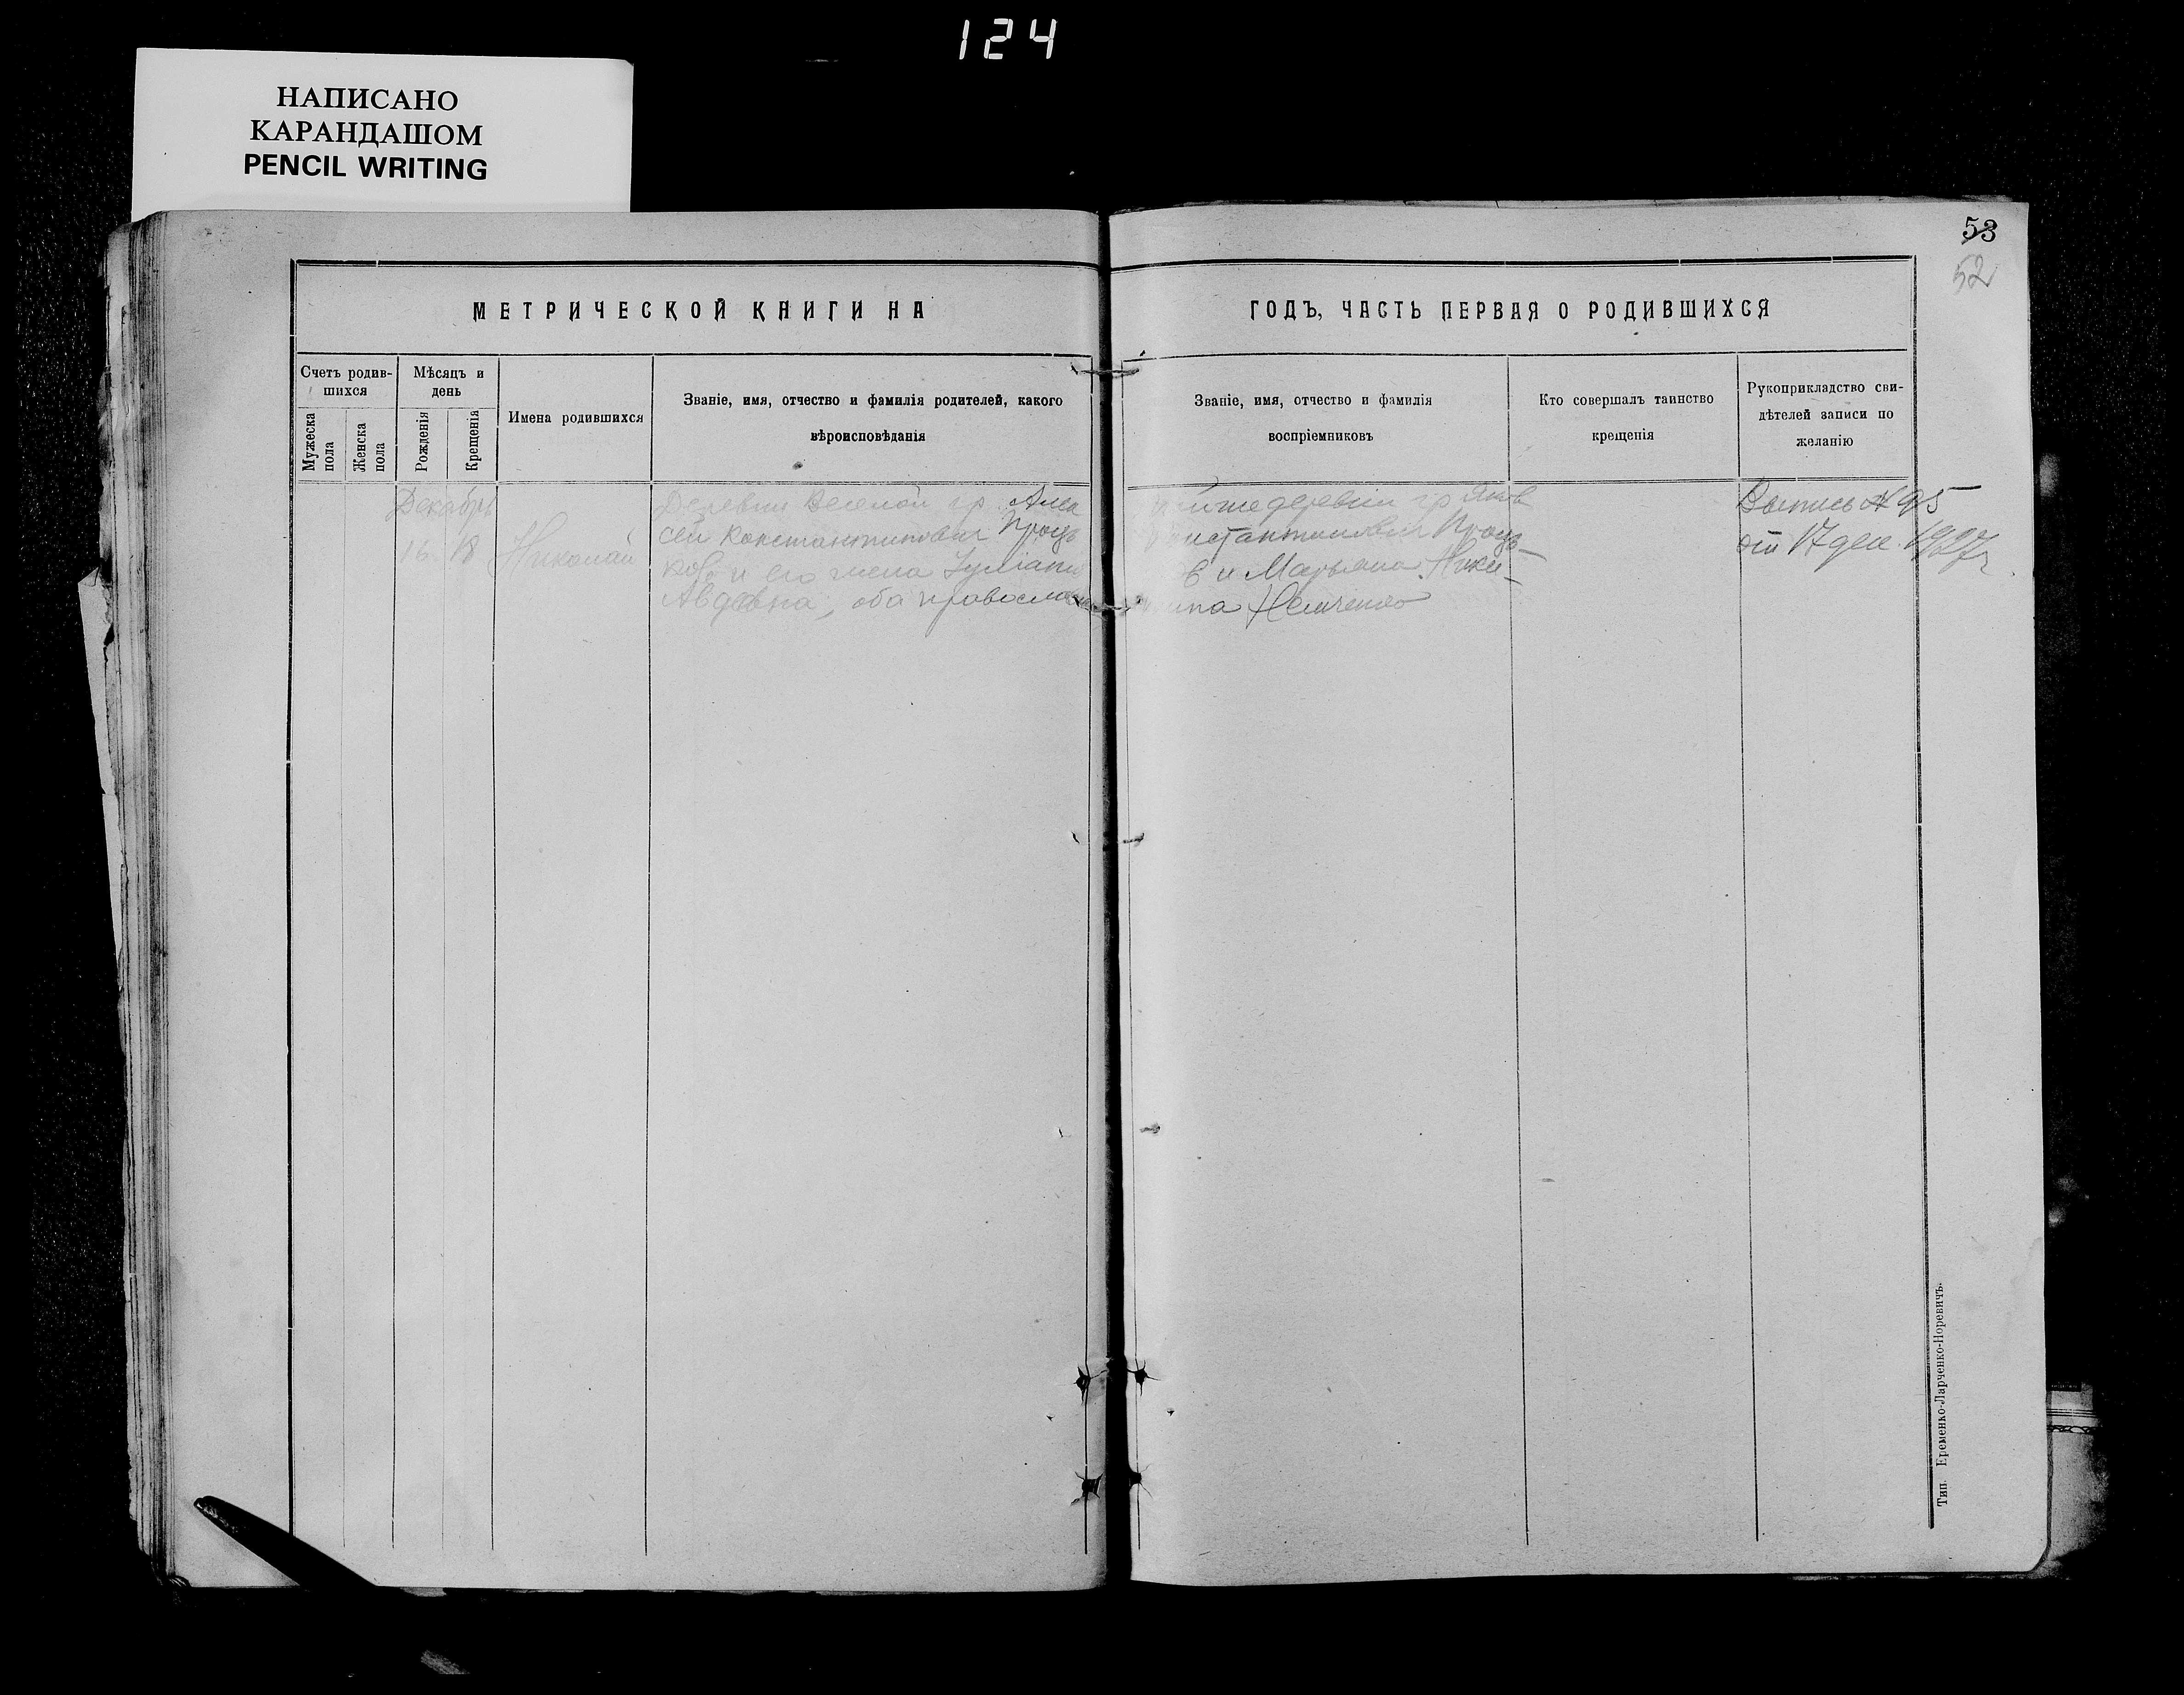 124
НАПИСАНО
КАРАНДАШОМ
PENCIL WRITING
53
52
МЕТРИЧЕСКОЙ КНИГИ НА
ГОДЪ, ЧАСТЬ ПЕРВАЯ О РОДИВШИХСЯ
Счетъ родив-
шихся
Мужеска
пола
Женска
пола
Мѣсяцъ и
день
Рожденія
Крещенія
Имена родившихся
Званіе, имя, отчество и фамилія родителей, какого
вѣроисповѣданія
Званіе, имя, отчество и фамилія
воспріемниковъ
Кто совершалъ таинство
крещенія
Рукоприкладство сви-
дѣтелей записи по
желанію
Декабрь
16 18
Николай
Деревни Веселой гр. Алек
сей Константинович
и его жена
Авдеевна, оба
деревни гр Яков
и Марьяна Ники-
Немченко
Выпись № 95
от 17 дек. 1927 г
Тип. Еременко-Ларченко-Норевичъ.